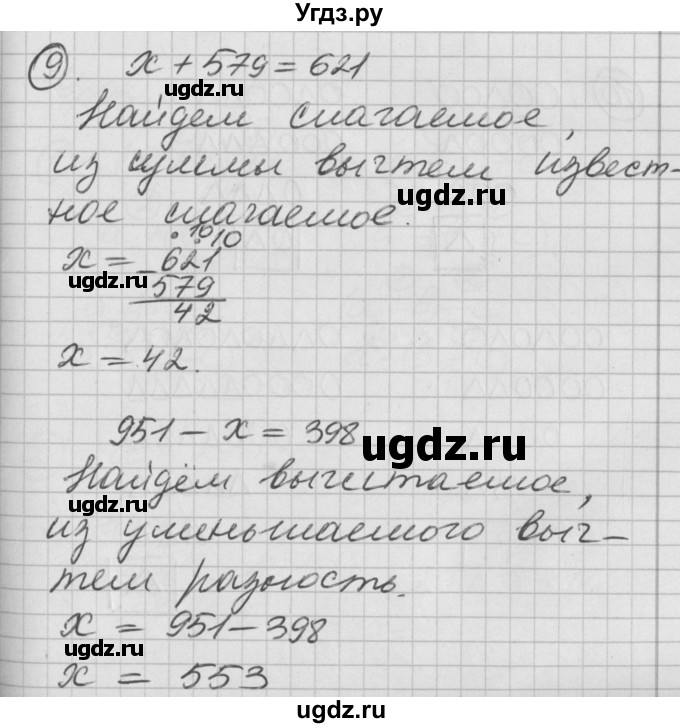 Угдз.ру
9. x + 579 = 621
ugdz.ru
Найдем слагаемое,
из суммы вычтем извест-
ugdz.ru
ное слагаемое.
10 10
x = - 621
ugdz.ru
579
42
x = 42.
951 - x = 398
ugdz.ru
Найдём вычитаемое,
ugdz.ru
из уменьшаемого выч-
тем разность.
ugdz.ru
x = 951 - 398
ugdz.ru
x = 553
ugdz.ru